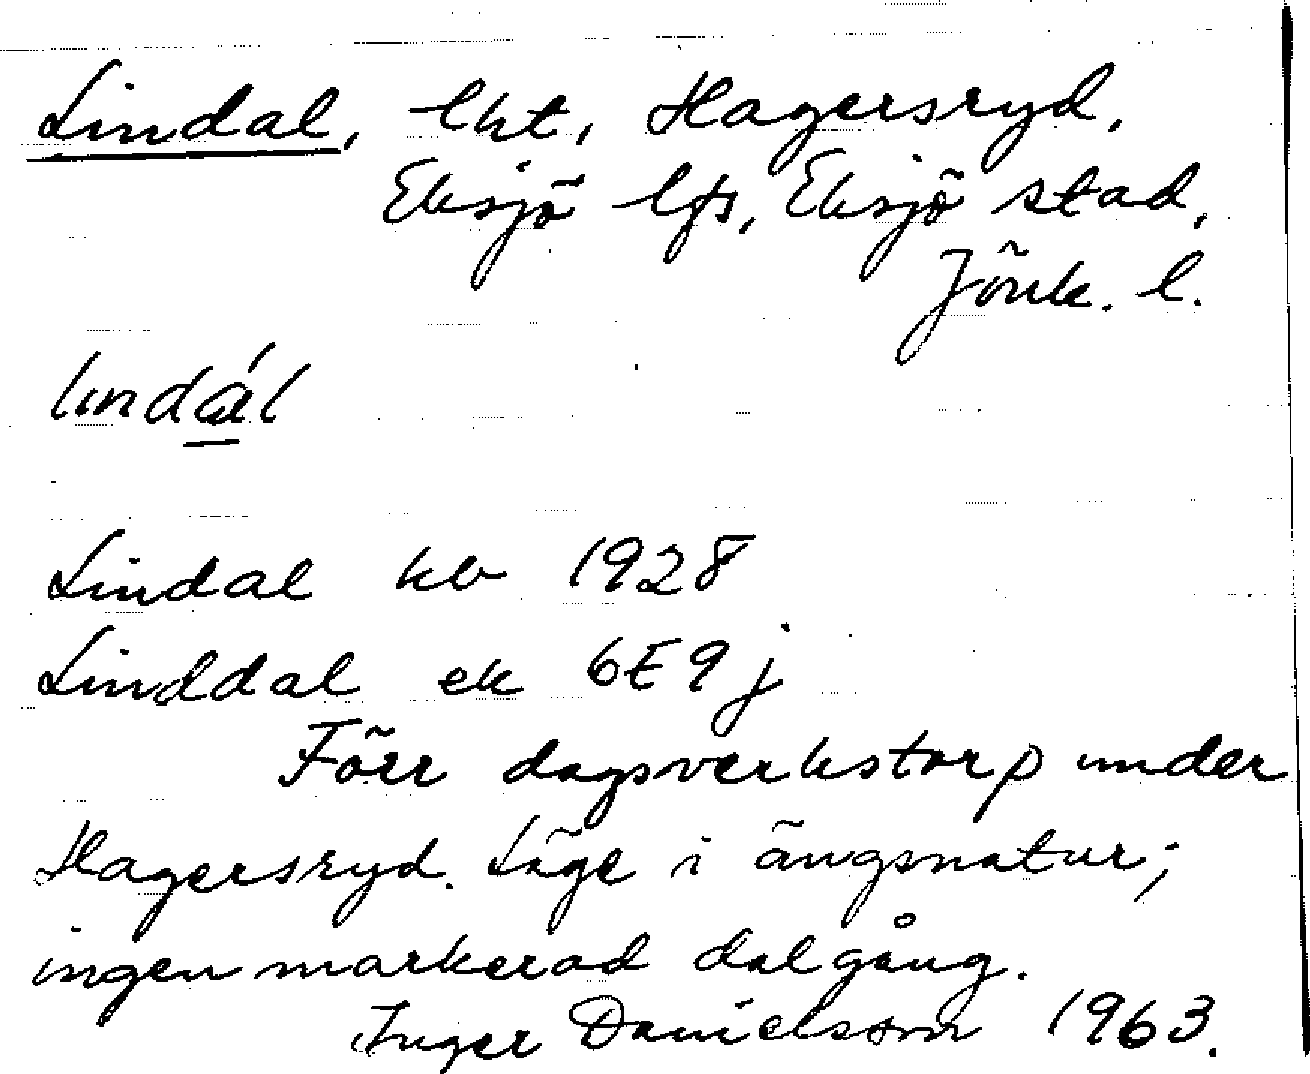 Lindal, lht, Hagersryd,
Eksjö lfs, Eksjö stad,
Jönk. l.
lindál
Lindal kb 1928
Linddal ek 6E9j
Förr dagsverkstorp under
Hagersryd. Läge i ängsnatur;
ingen markerad dalgång.
Inger Danielsson 1963.